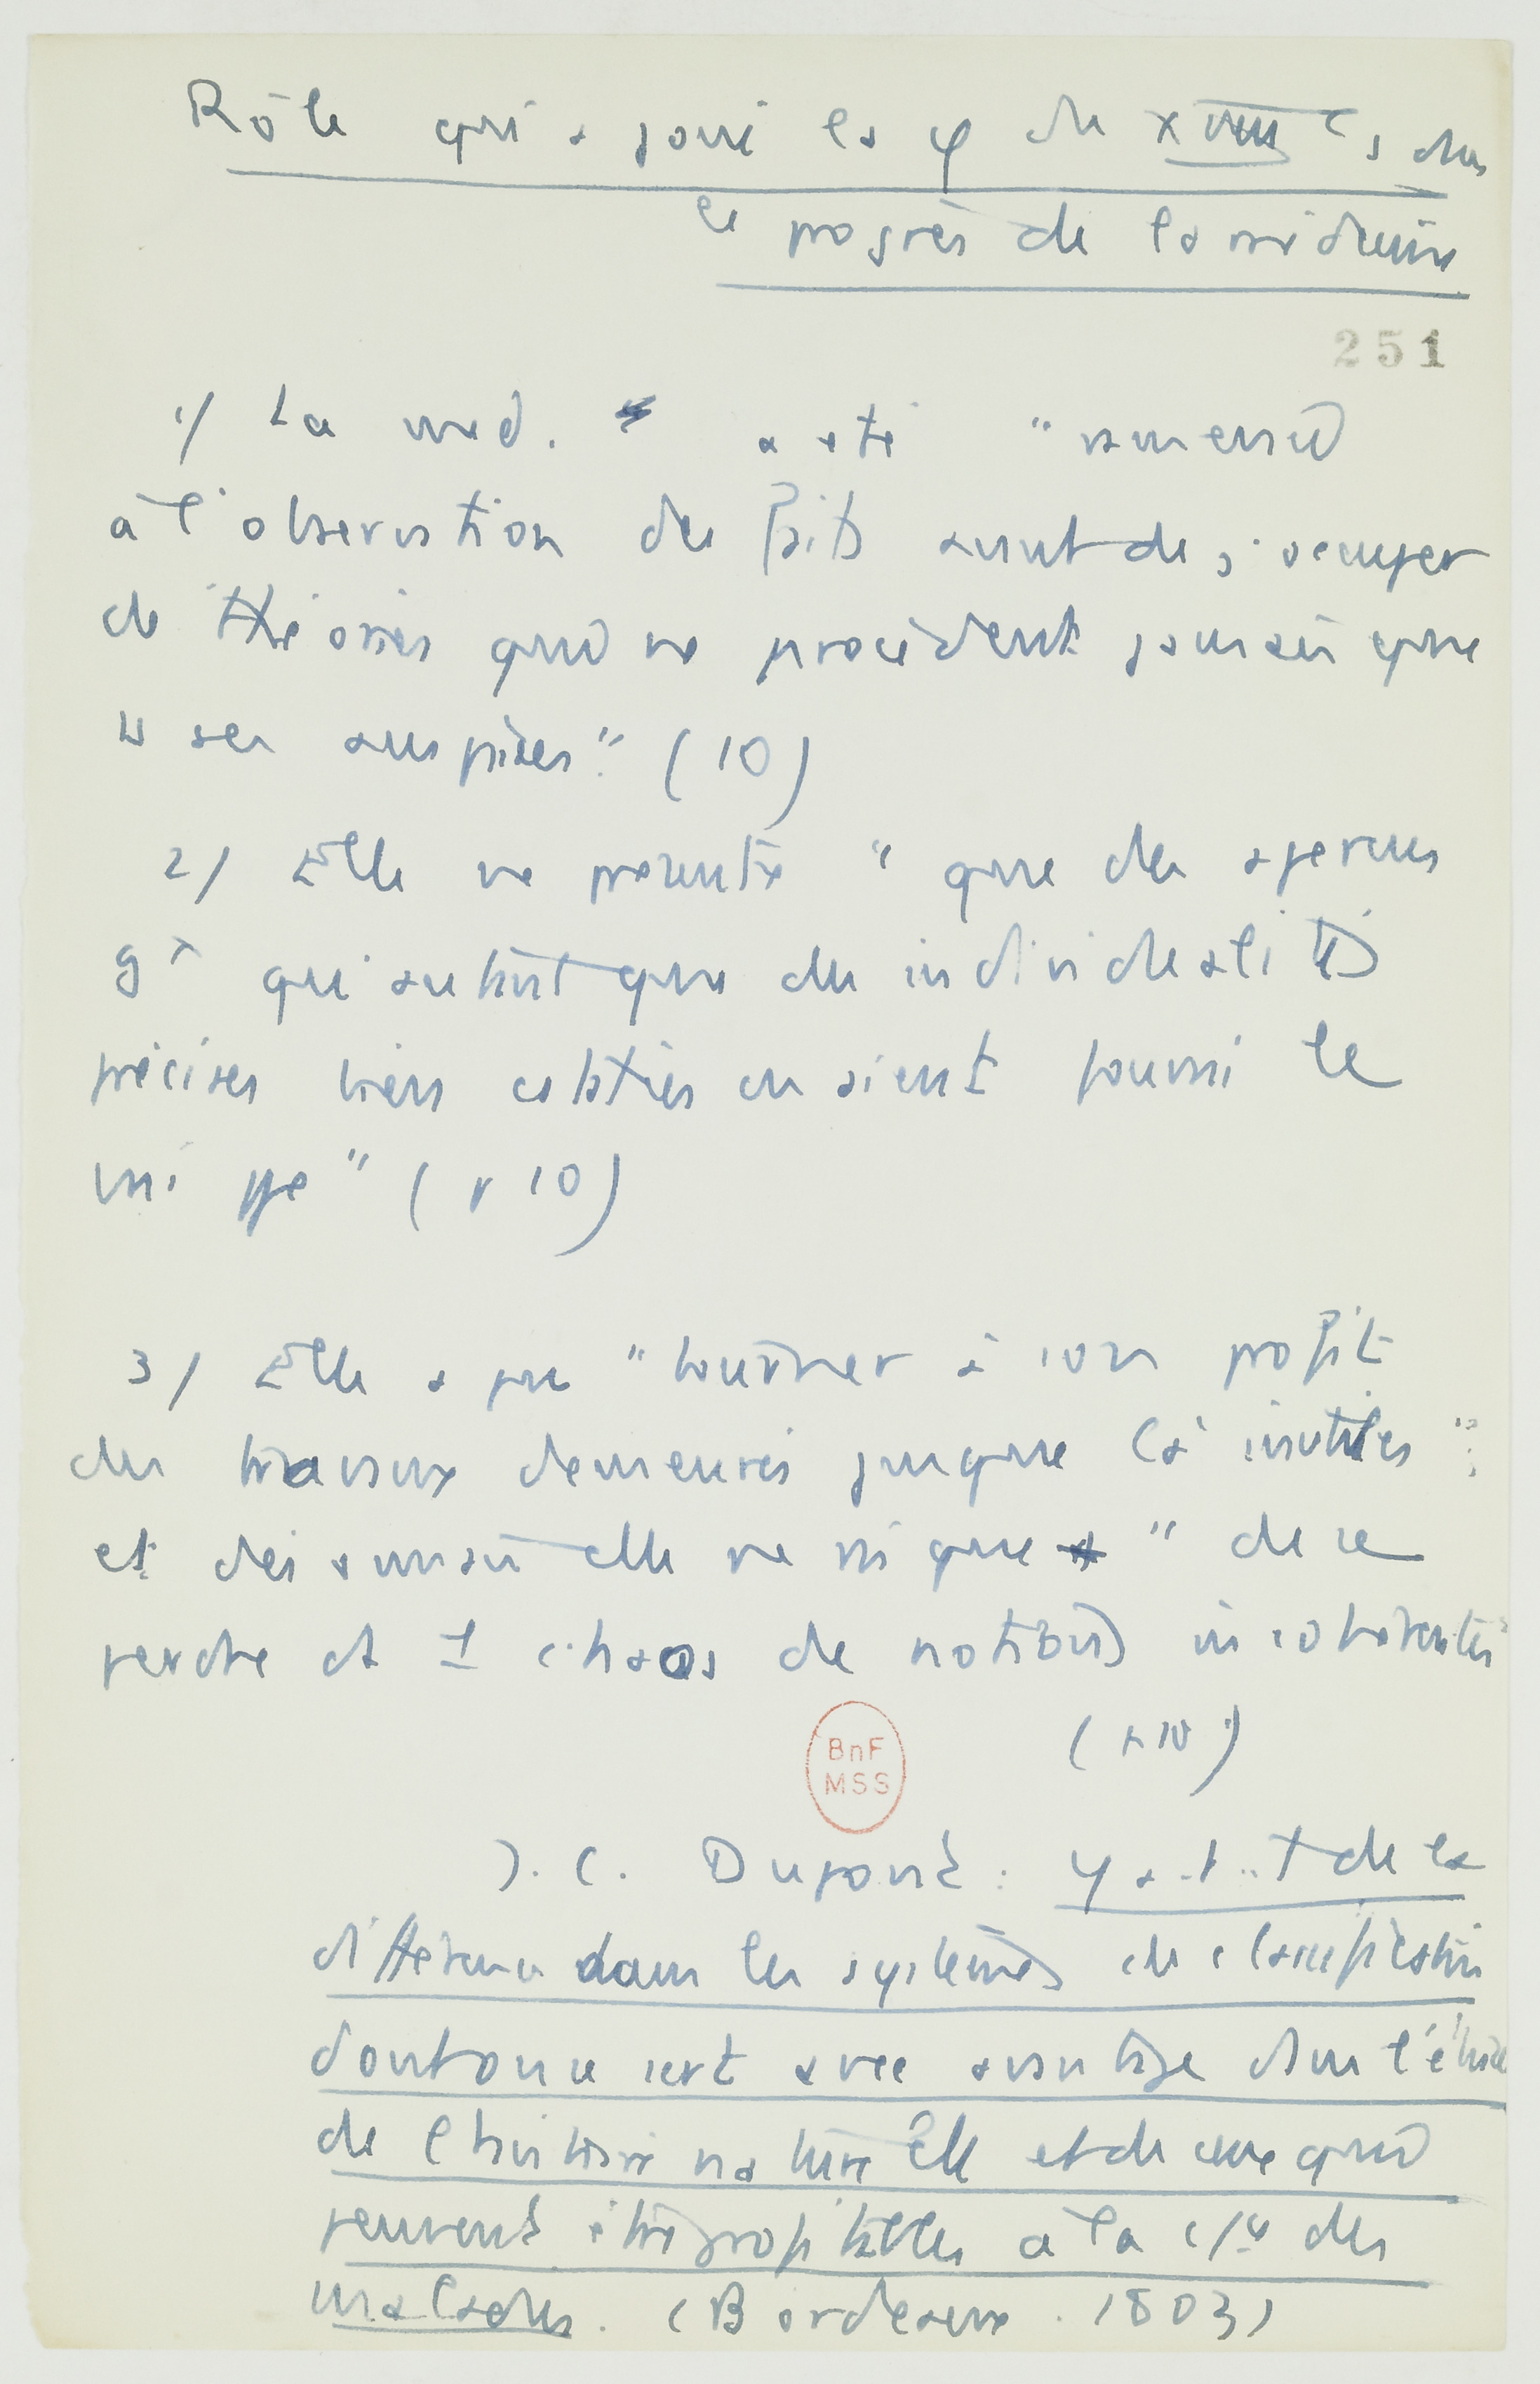 Rôle qu'a joué la φ du XVIIIe s. dans
le progrès de la médecine
251
1/ La med. a été "ramenée
à l'observation des faits avant de s'occuper
de théories qui ne procèdent jamais que
ss ses auspices". (10)
2/ Elle ne présente "que des aperçus
gx qui autant que des individualités
précises bien constatées en aient fourni le
principe" (p 10)
3/ Elle a pu "tourner à son profit
des travaux demeurés jusque là inutiles";
et désormais elle ne risque "de se
perdre ds 1 chaos de notions incohérentes"
(p 10)
BnF
MSS
J. C. Dupont : Y a-t-il de la
différence dans les systèmes de classification
dont on se sert avec avantage dans l'étude
de l'histoire naturelle et de ceux qui
peuvent être profitables à la c/ce des
maladies. (Bordeaux. 1803)